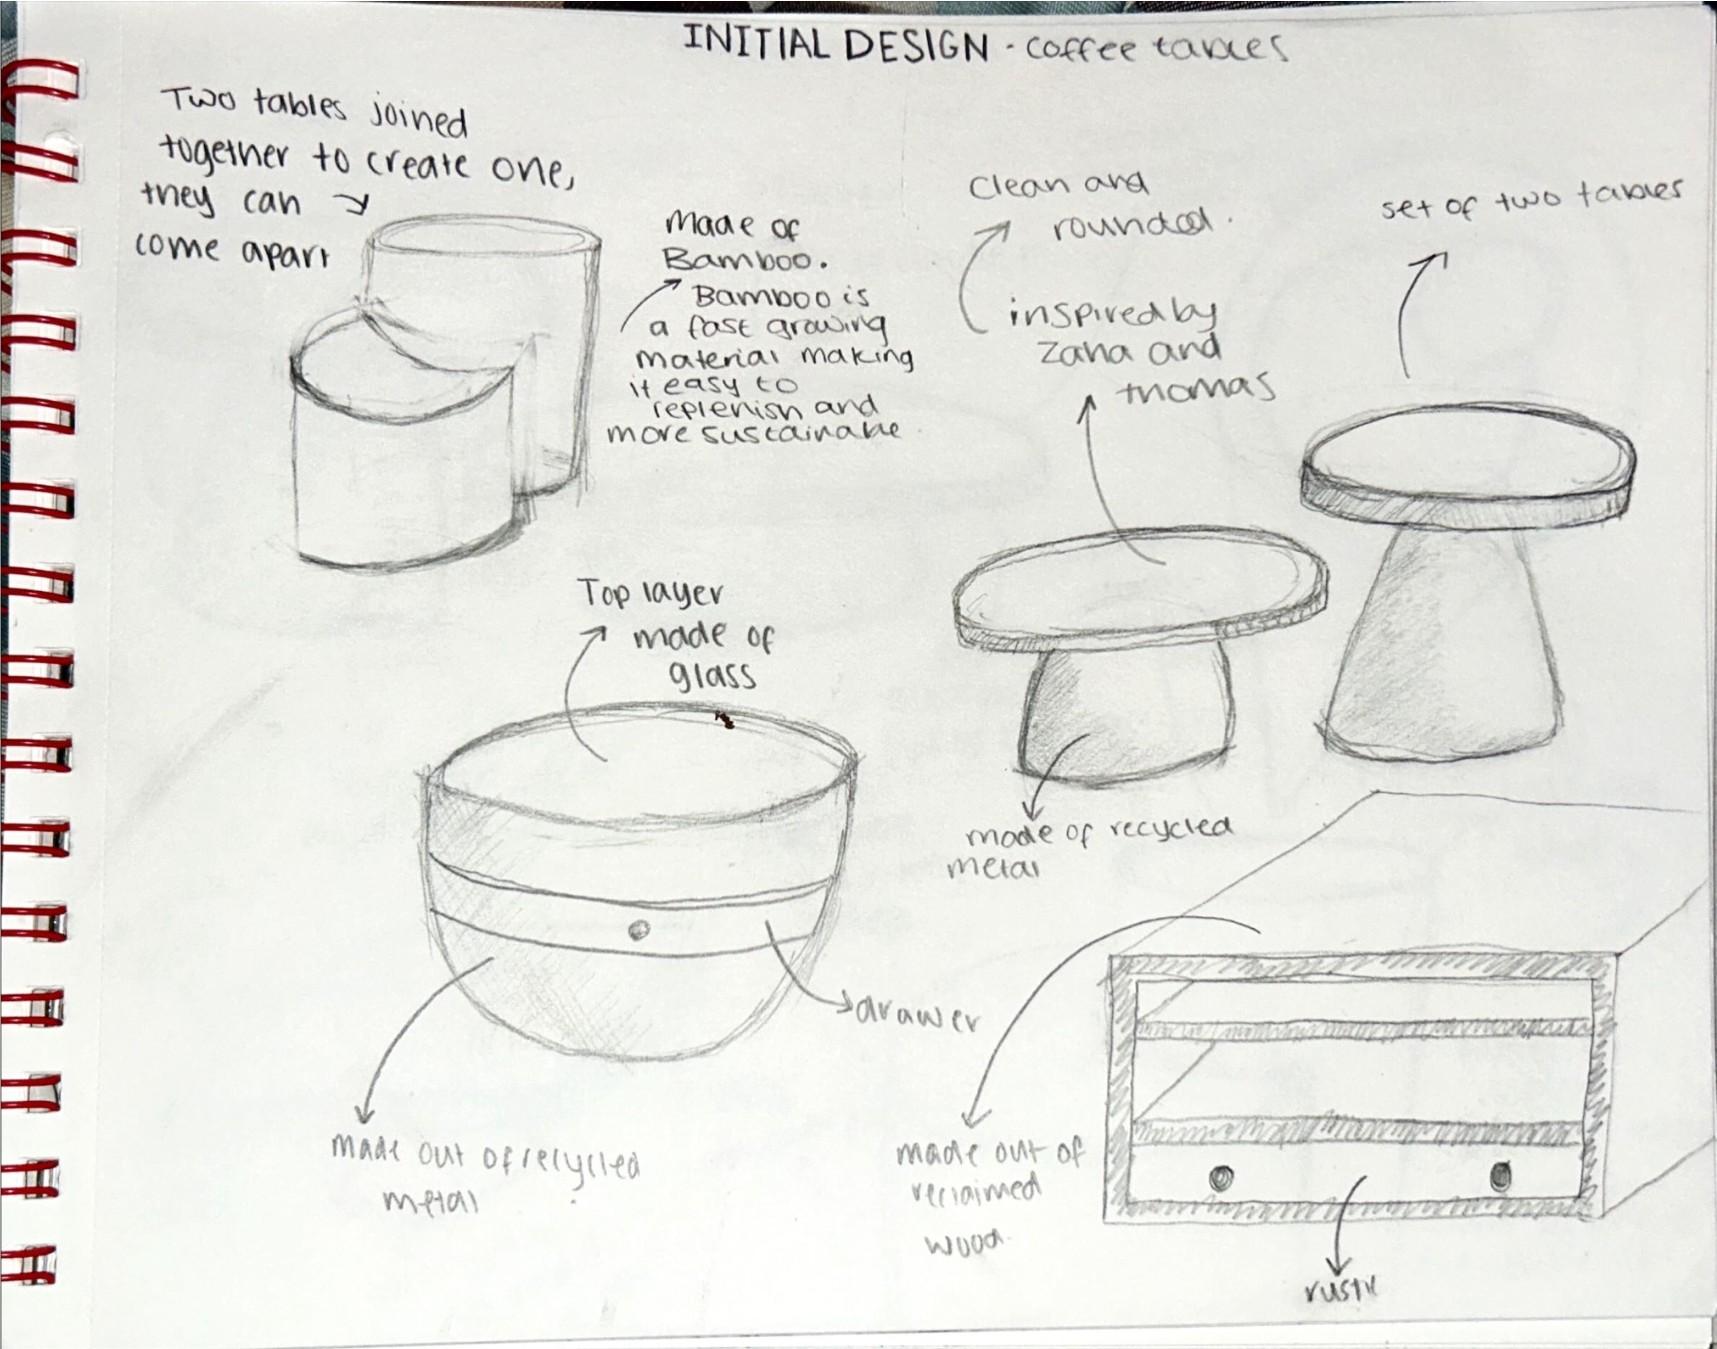 INITIAL DESIGN - coffee tables
Two tables joined
together to create one,
they can
come apart
Made of
Bamboo.
Bamboo is
a fast growing
material making
it easy to
replenish and
more sustainable
clean and
rounded.
inspired by
Zaha and
thomas
set of two tables
Top layer
made of
glass
made of recycled
metal
drawer
made out of recycled
metal
made out of
reclaimed
wood.
rustic